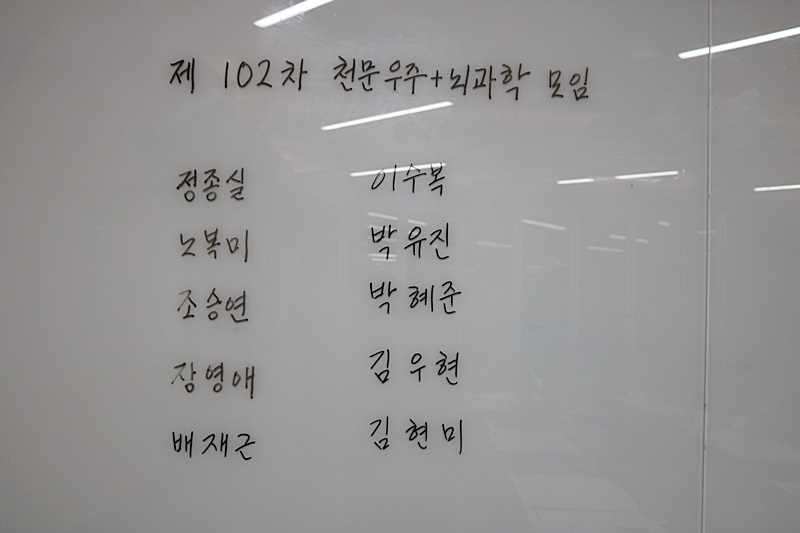 제 102차 천문우주+뇌과학 모임
정종실 이수복
노복미 박유진
조승연 박혜준
장영애 김우현
배재근 김현미